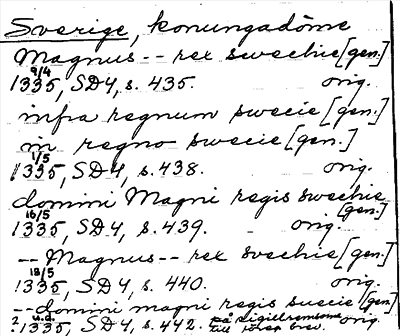 Sverige, konungadöme
Magnus -- rex swechie [gen.]
9/4
1335, SD4, s. 435. orig.
infra regnum swecie [gen.]
in regno swecie [gen.]
1/5
1335, SD4, s. 438. orig.
domini Magni regis swechie [gen.]
16/5
1335, SD4, s. 439. orig.
-- Magnus -- rex svechie [gen.]
18/5
1335, SD4, s. 440. orig.
-- domini magni regis suecie [gen.]
u.d.
?1335, SD4, s. 442. på sigillremsorna till förra brev. orig.